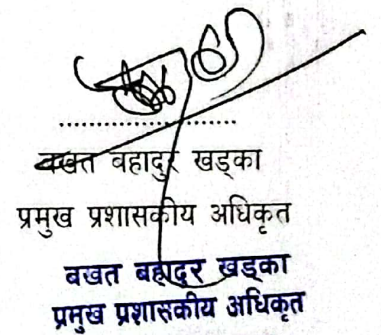 ....................
वखत बहादुर खड्का
प्रमुख प्रशासकीय अधिकृत
वखत बहादुर खड्का
प्रमुख प्रशासकीय अधिकृत